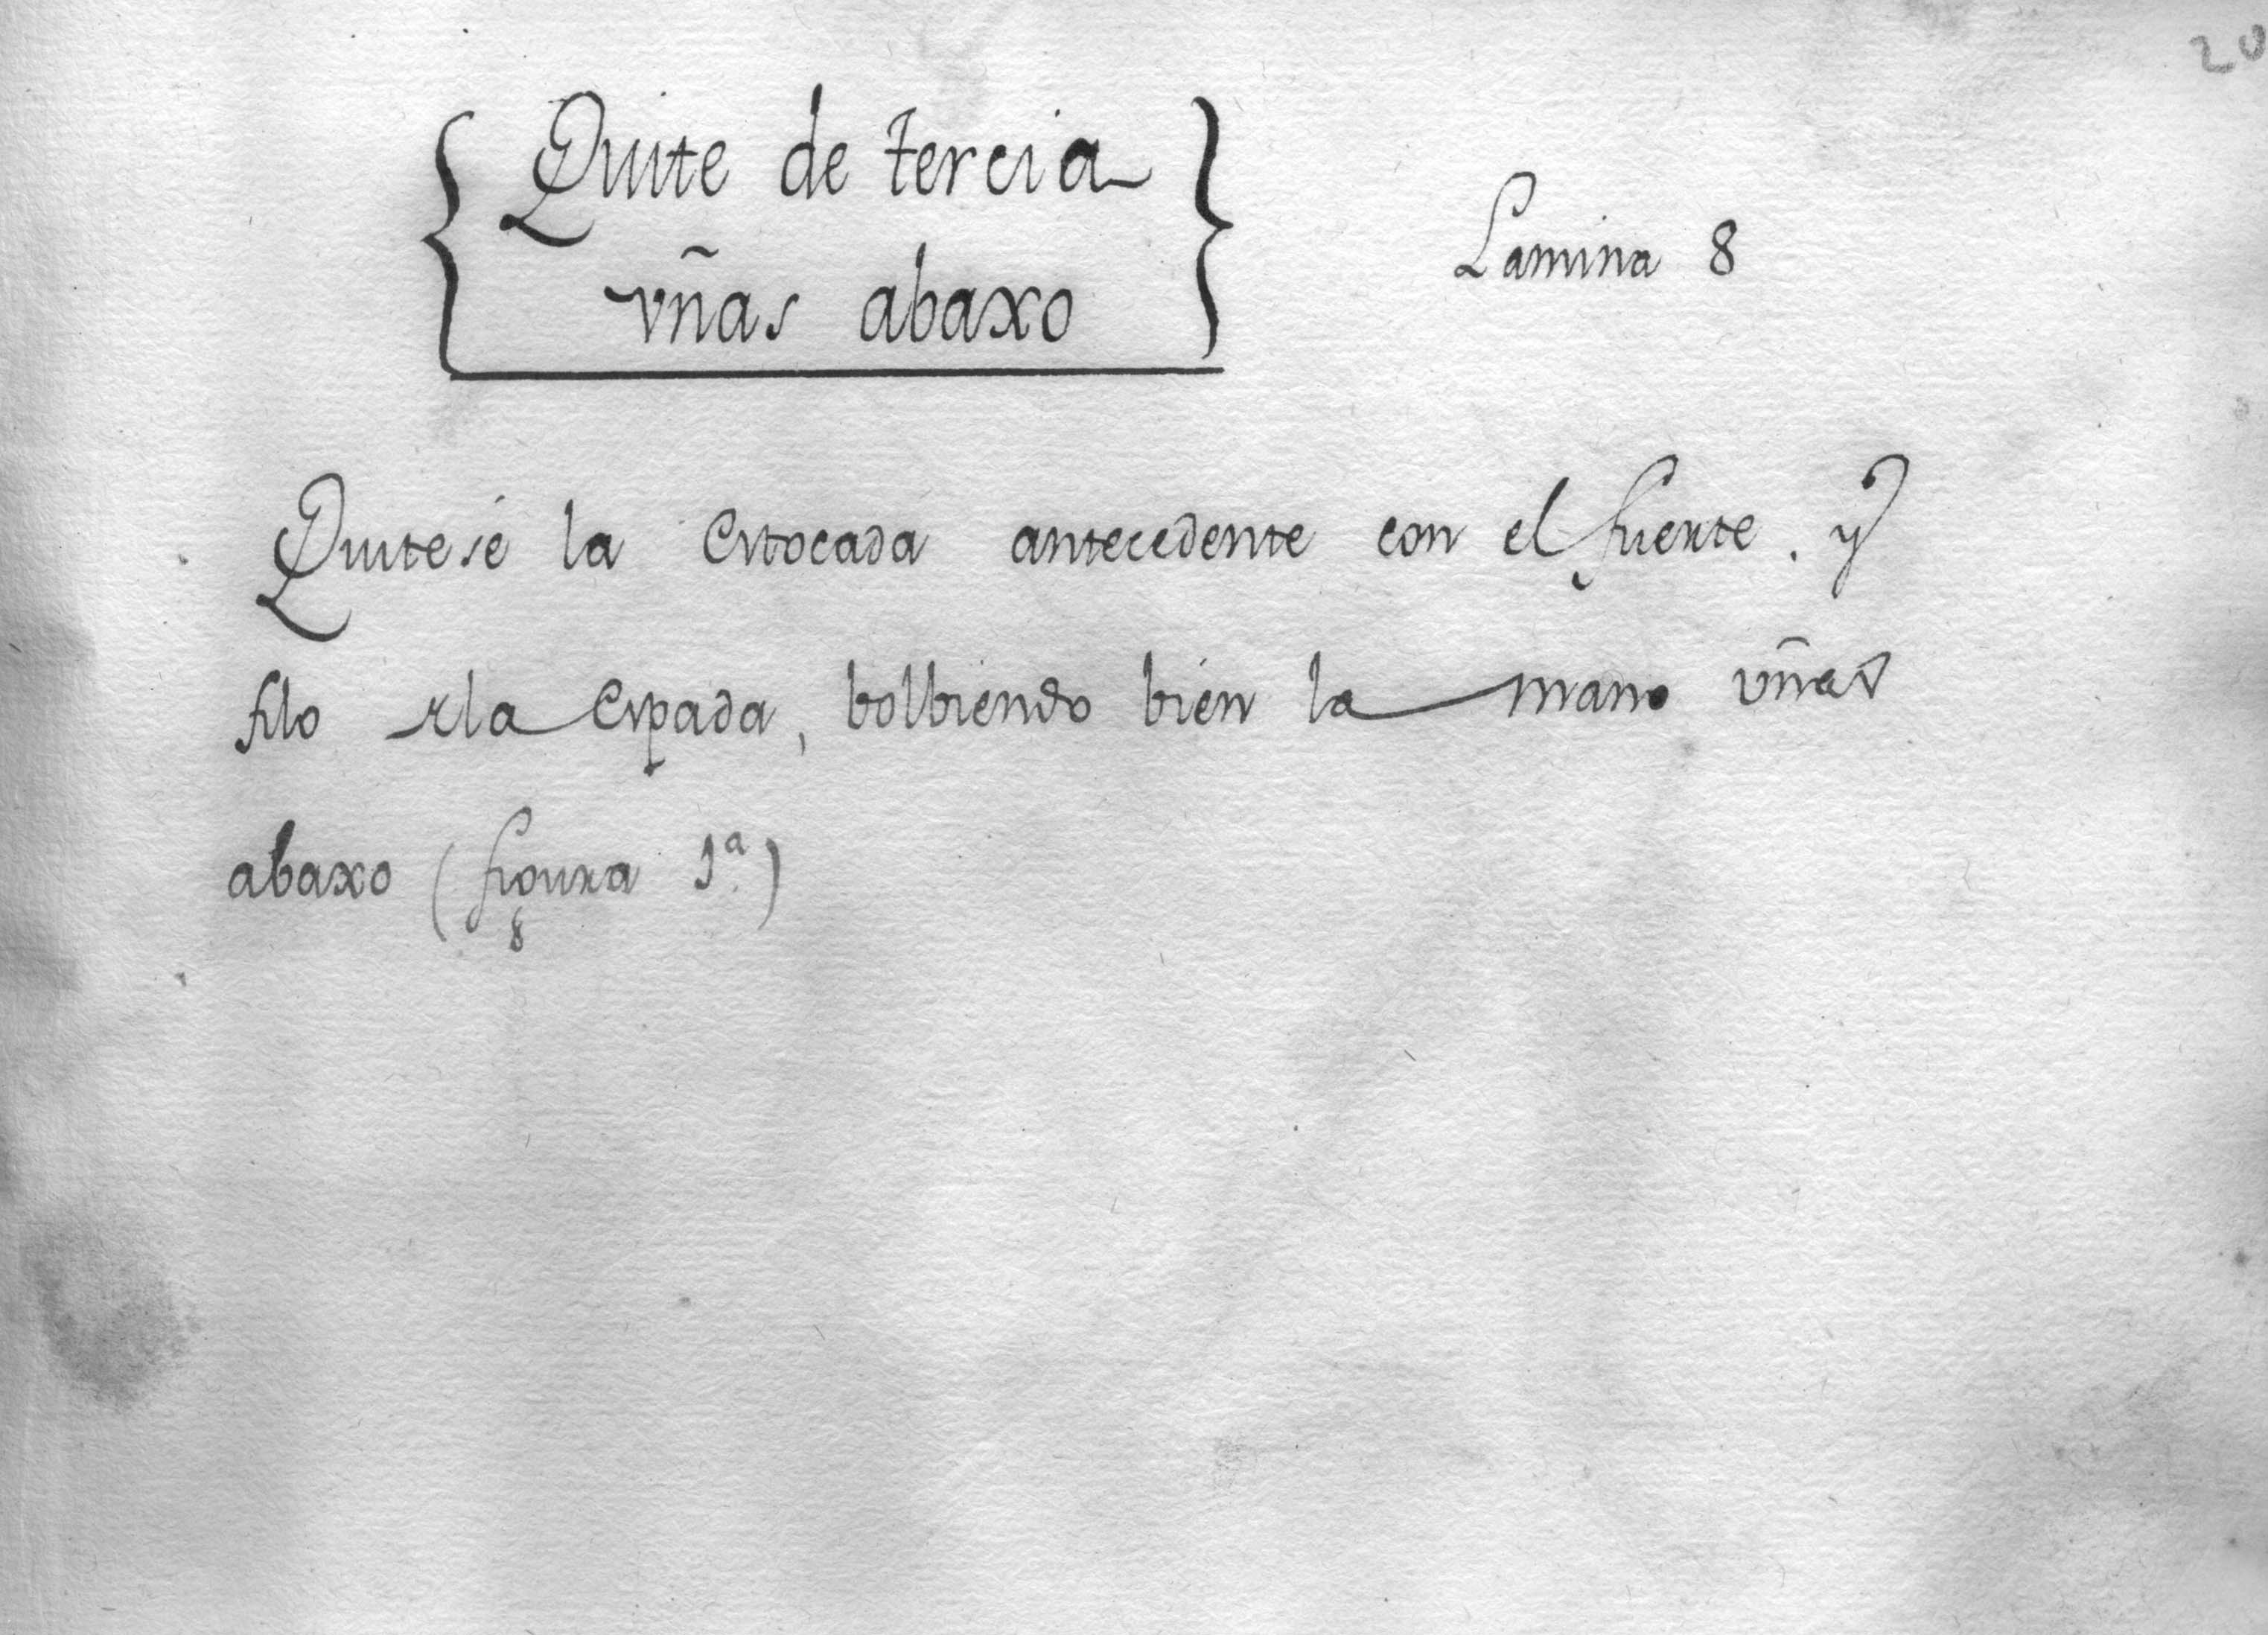 20
Quite de tercia
vñas abaxo
Lamina 8
Quitese la Estocada antecedente con el fuerte. y
filo dela Espada, bolbiendo bien la mano vñas
abaxo (figura 1ª.)